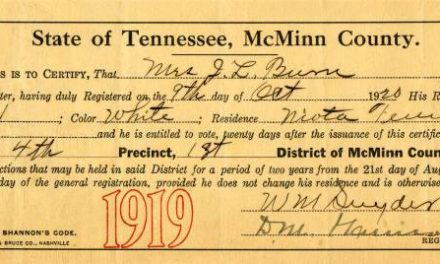 State of Tennessee, McMinn County.
IS IS TO CERTIFY, That Mrs J. L. Burn
ter, having duly Registered on the 9th day of Oct 1920 His R
Color White Residence Niota Tenn
and he is entitled to vote, twenty days after the issuance of this certific
4th Precinct, 1st District of McMinn Coun
ctions that may be held in said District for a period of two years from the 21st day of Aug
day of the general registration, provided he does not change his residence and is otherwise
1919
W M Snyder
SHANNON'S CODE.
D.M.
& BRUCE CO., NASHVILLE
REG